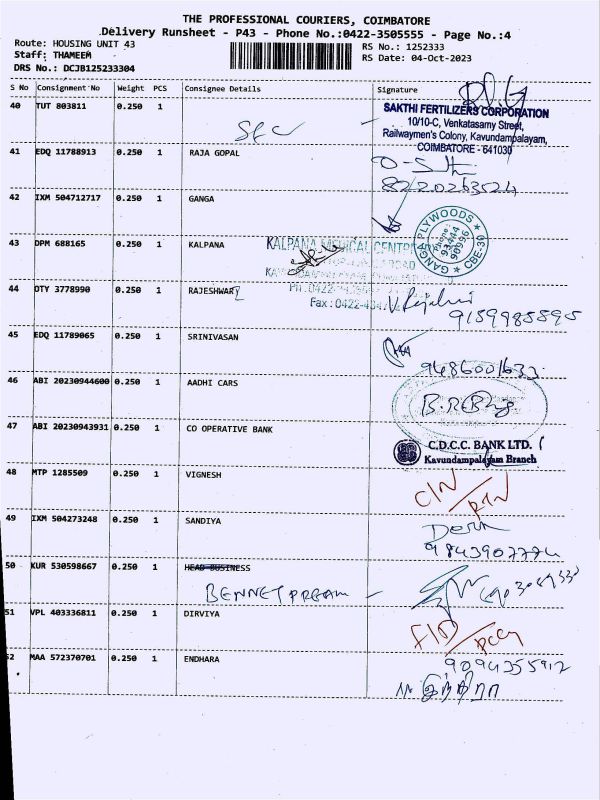 THE PROFESSIONAL COURIERS, COIMBATORE
Delivery Runsheet - P43 - Phone No.:0422-3505555 - Page No.:4
Route: HOUSING UNIT 43
RS No.: 1252333
Staff: THAMEEM
RS Date: 04-Oct-2023
DRS No.: DCJB125233304
S No Consignment No Weight PCS Consignee Details Signature
40 TUT 803811 0.250 1 SFC
SAKTHI FERTILIZERS CORPORATION
10/10-C, Venkatasamy Street,
Railwaymen's Colony, Kavundampalayam,
COIMBATORE - 641030
41 EDQ 11788913 0.250 1 RAJA GOPAL
8220263524
42 IXM 504712717 0.250 1 GANGA
GANGA PLYWOODS CBE-30
Phone: 93444 90096
43 DPM 688165 0.250 1 KALPANA
KALPANA MEDICAL CENTRE
44 OTY 3778990 0.250 1 RAJESHWARI
9159985595
Fax : 0422-
45 EDQ 11789065 0.250 1 SRINIVASAN
9486001633
46 ABI 20230944600 0.250 1 AADHI CARS
47 ABI 20230943931 0.250 1 CO OPERATIVE BANK
C.D.C.C. BANK LTD.
Kavundampalayam Branch
48 MTP 1285509 0.250 1 VIGNESH
C/N / RTN
49 IXM 504273248 0.250 1 SANDIYA
9843907774
50 KUR 530598667 0.250 1 HEAD BUSINESS
BENNET PREAM -
51 VPL 403336811 0.250 1 DIRVIYA
52 MAA 572370701 0.250 1 ENDHARA
9094355912